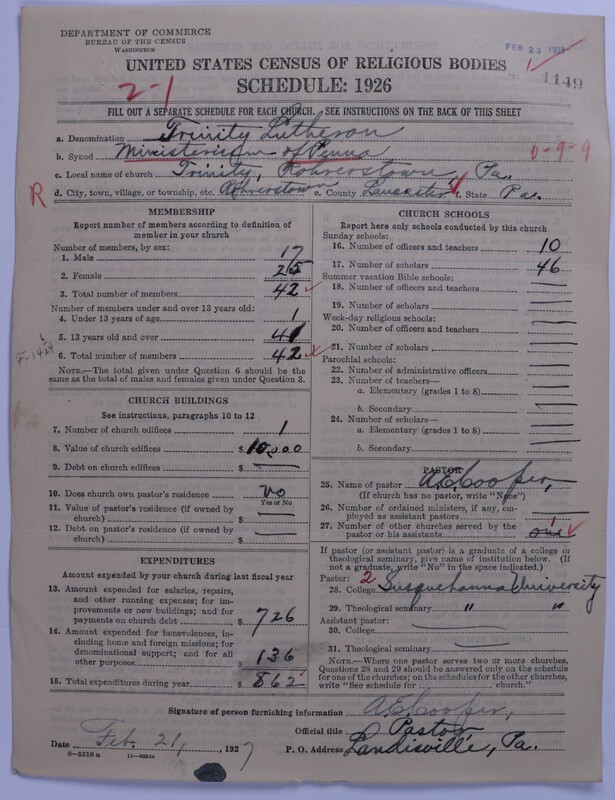 DEPARTMENT OF COMMERCE
BUREAU OF THE CENSUS
WASHINGTON
FEB 23 1927
1149
UNITED STATES CENSUS OF RELIGIOUS BODIES
2-1
SCHEDULE: 1926
FILL OUT A SEPARATE SCHEDULE FOR EACH CHURCH. SEE INSTRUCTIONS ON THE BACK OF THIS SHEET
a. Denomination Trinity Lutheran
b. Synod Ministerium of Penna
0-9-9
c. Local name of church Trinity, Rohrerstown, Pa.
R
d. City, town, village, or township, etc. Rohrerstown e. County Lancaster f. State Pa.
MEMBERSHIP
Report number of members according to definition of member in your church
Number of members, by sex:
1. Male 17
2. Female 25
3. Total number of members 42
Number of members under and over 13 years old:
4. Under 13 years of age 1
5. 13 years old and over 41
6. Total number of members 42
NOTE.—The total given under Question 6 should be the same as the total of males and females given under Question 3.
CHURCH BUILDINGS
See instructions, paragraphs 10 to 12
7. Number of church edifices 1
8. Value of church edifices $ 10,000
9. Debt on church edifices $ —
10. Does church own pastor's residence No
Yes or No
11. Value of pastor's residence (if owned by church) $ —
12. Debt on pastor's residence (if owned by church) $ —
EXPENDITURES
Amount expended by your church during last fiscal year
13. Amount expended for salaries, repairs, and other running expenses; for improvements or new buildings; and for payments on church debt $ 726
14. Amount expended for benevolences, including home and foreign missions; for denominational support; and for all other purposes 136
15. Total expenditures during year $ 862
CHURCH SCHOOLS
Report here only schools conducted by this church
Sunday schools:
16. Number of officers and teachers 10
17. Number of scholars 46
Summer vacation Bible schools:
18. Number of officers and teachers —
19. Number of scholars —
Week-day religious schools:
20. Number of officers and teachers —
21. Number of scholars —
Parochial schools:
22. Number of administrative officers —
23. Number of teachers—
a. Elementary (grades 1 to 8) —
b. Secondary —
24. Number of scholars—
a. Elementary (grades 1 to 8) —
b. Secondary —
PASTOR
25. Name of pastor A.E. Cooper,
(If church has no pastor, write "None")
26. Number of ordained ministers, if any, employed as assistant pastors —
27. Number of other churches served by the pastor or his assistants one
If pastor (or assistant pastor) is a graduate of a college or theological seminary, give name of institution below. (If not a graduate, write "No" in the space indicated.)
Pastor: 2
28. College Susquehanna University
29. Theological seminary " "
Assistant pastor:
30. College —
31. Theological seminary —
NOTE.—Where one pastor serves two or more churches, Questions 28 and 29 should be answered only on the schedule for one of the churches; on the schedules for the other churches, write "See schedule for ........ church."
Signature of person furnishing information A.E. Cooper,
Official title Pastor
Date Feb. 21, 1927 P. O. Address Landisville, Pa.
8-5318 a